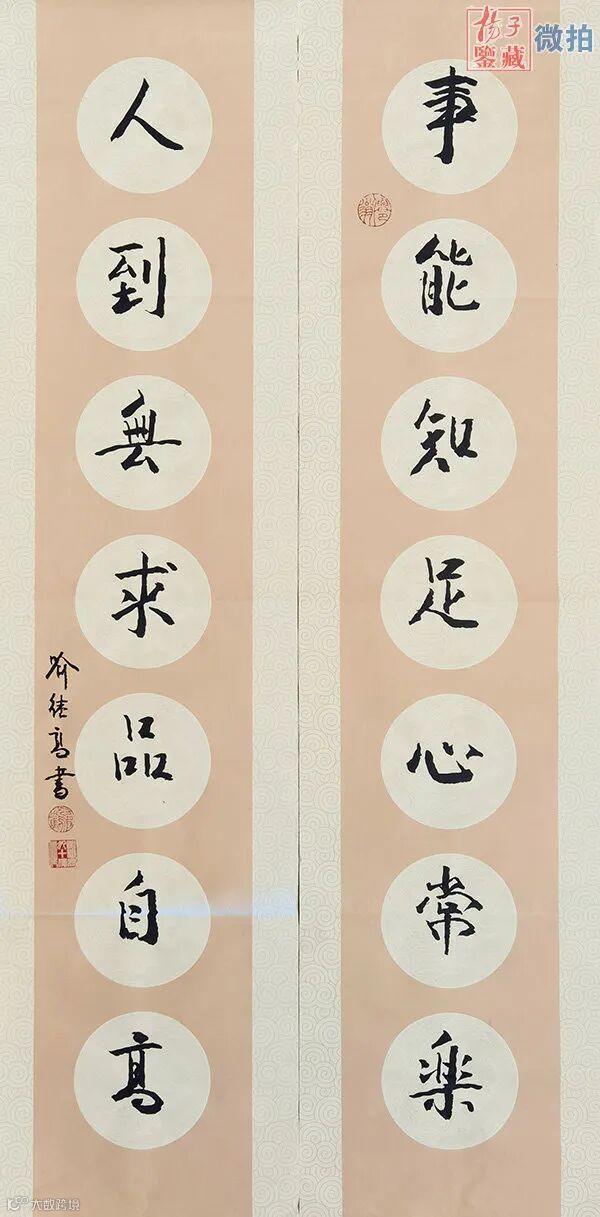 事能知足心常樂
人到無求品自高
喻继高書
杨子
鑒藏
微拍
大数跨境